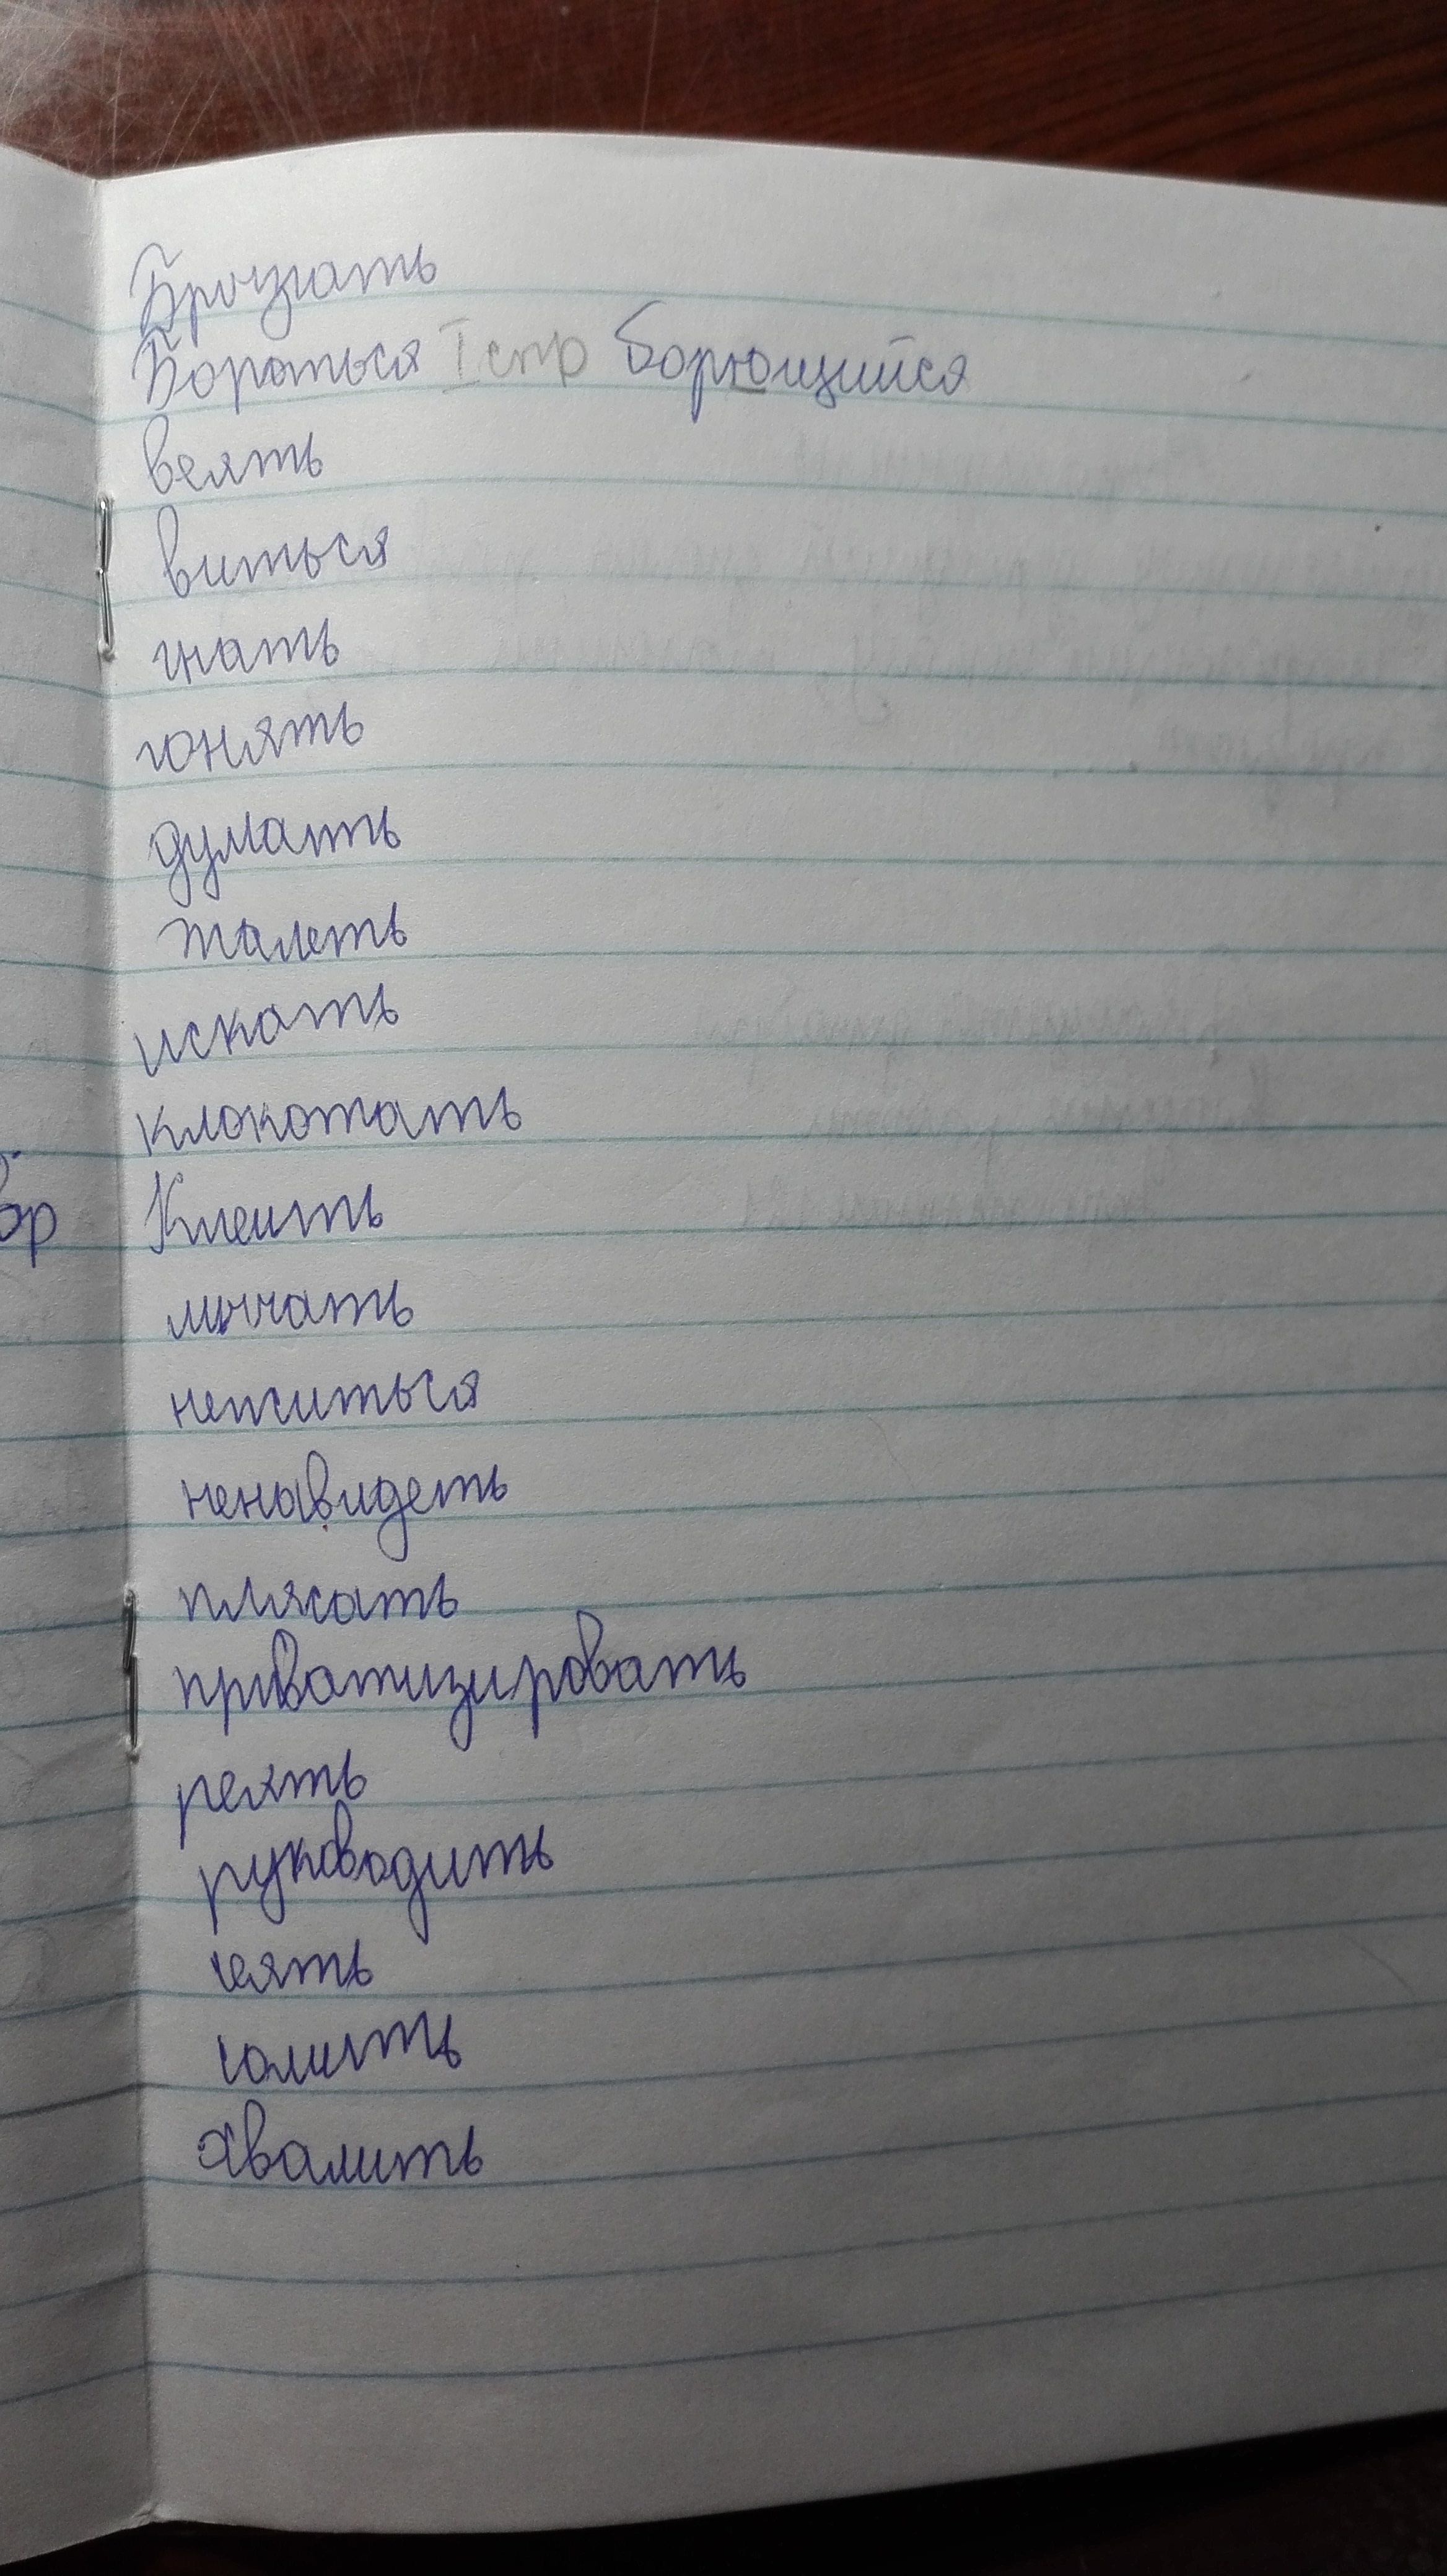 Брюзжать
Бороться I спр борющийся
веять
виться
гнать
гонять
думать
жалеть
искать
клокотать
вр Клеить
мычать
нежиться
ненавидеть
плясать
приватизировать
реять
руководить
сеять
солить
хвалить